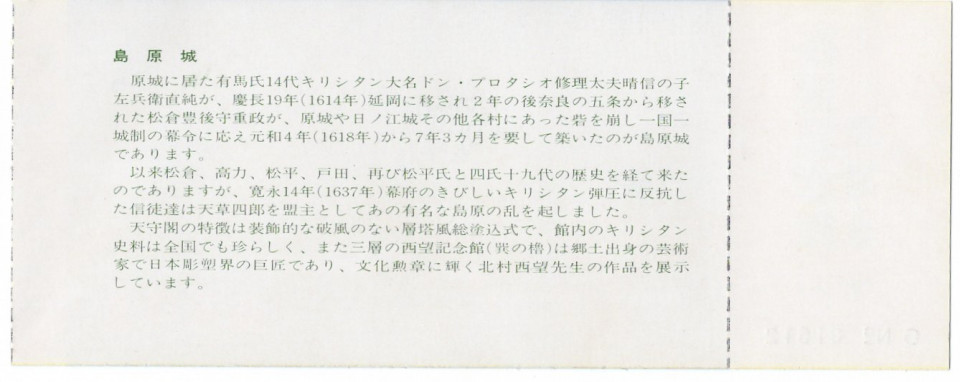 島原城
原城に居た有馬氏14代キリシタン大名ドン・プロタシオ修理太夫晴信の子
左兵衛直純が、慶長19年(1614年)延岡に移され2年の後奈良の五条から移さ
れた松倉豊後守重政が、原城や日ノ江城その他各村にあった砦を崩し一国一
城制の幕令に応え元和4年(1618年)から7年3カ月を要して築いたのが島原城
であります。
以来松倉、高力、松平、戸田、再び松平氏と四氏十九代の歴史を経て来た
のでありますが、寛永14年(1637年)幕府のきびしいキリシタン弾圧に反抗し
た信徒達は天草四郎を盟主としてあの有名な島原の乱を起しました。
天守閣の特徴は装飾的な破風のない層塔風総塗込式で、館内のキリシタン
史料は全国でも珍らしく、また三層の西望記念館(巽の櫓)は郷土出身の芸術
家で日本彫塑界の巨匠であり、文化勲章に輝く北村西望先生の作品を展示
しています。